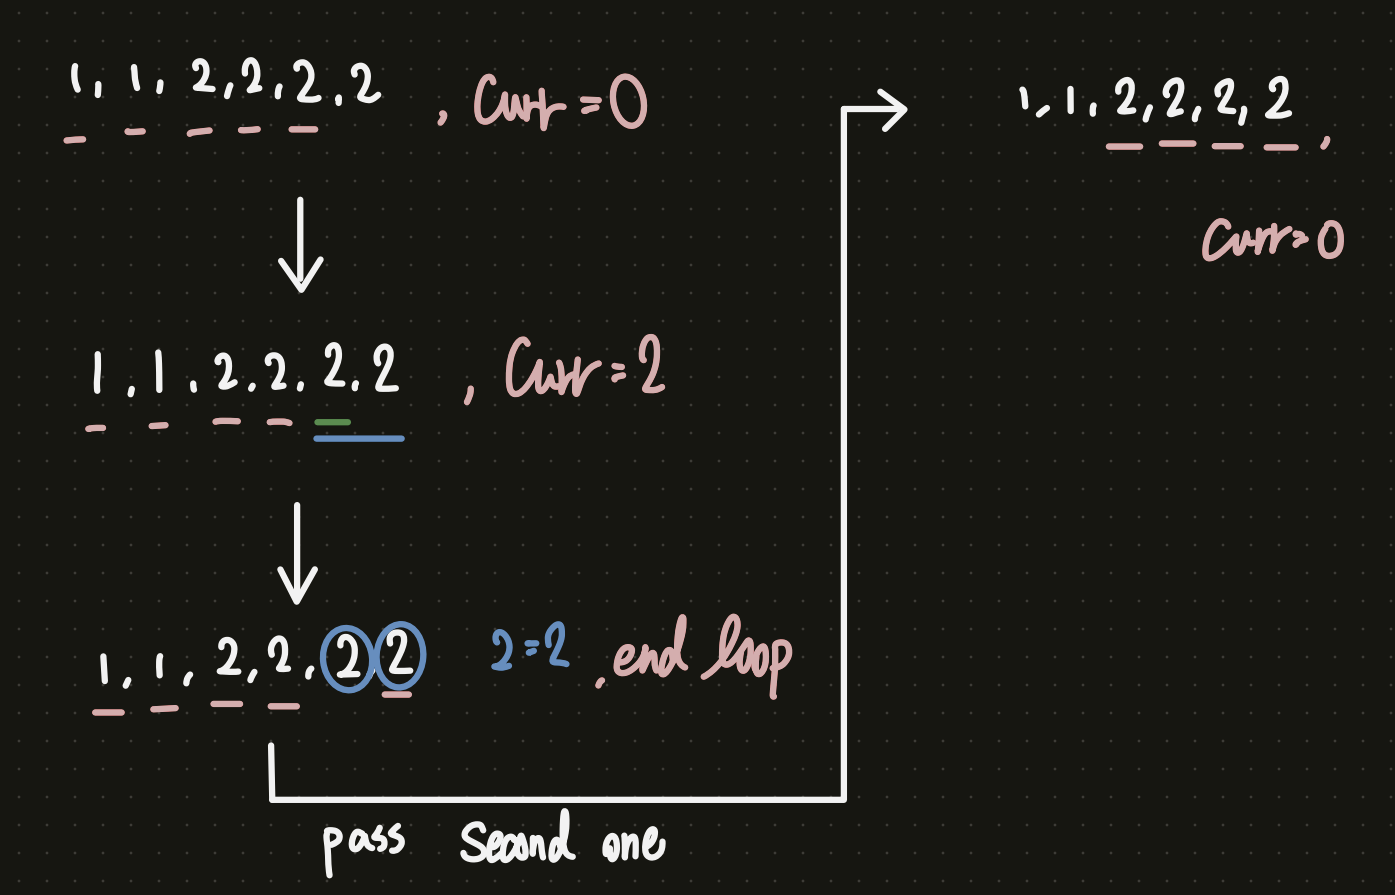 1, 1, 2, 2, 2, 2 , Curr = 0
1, 1, 2, 2, 2, 2 , Curr = 2
1, 1, 2, 2, 2, 2 2 = 2 , end loop
pass second one
1, 1, 2, 2, 2, 2 ,
Curr = 0